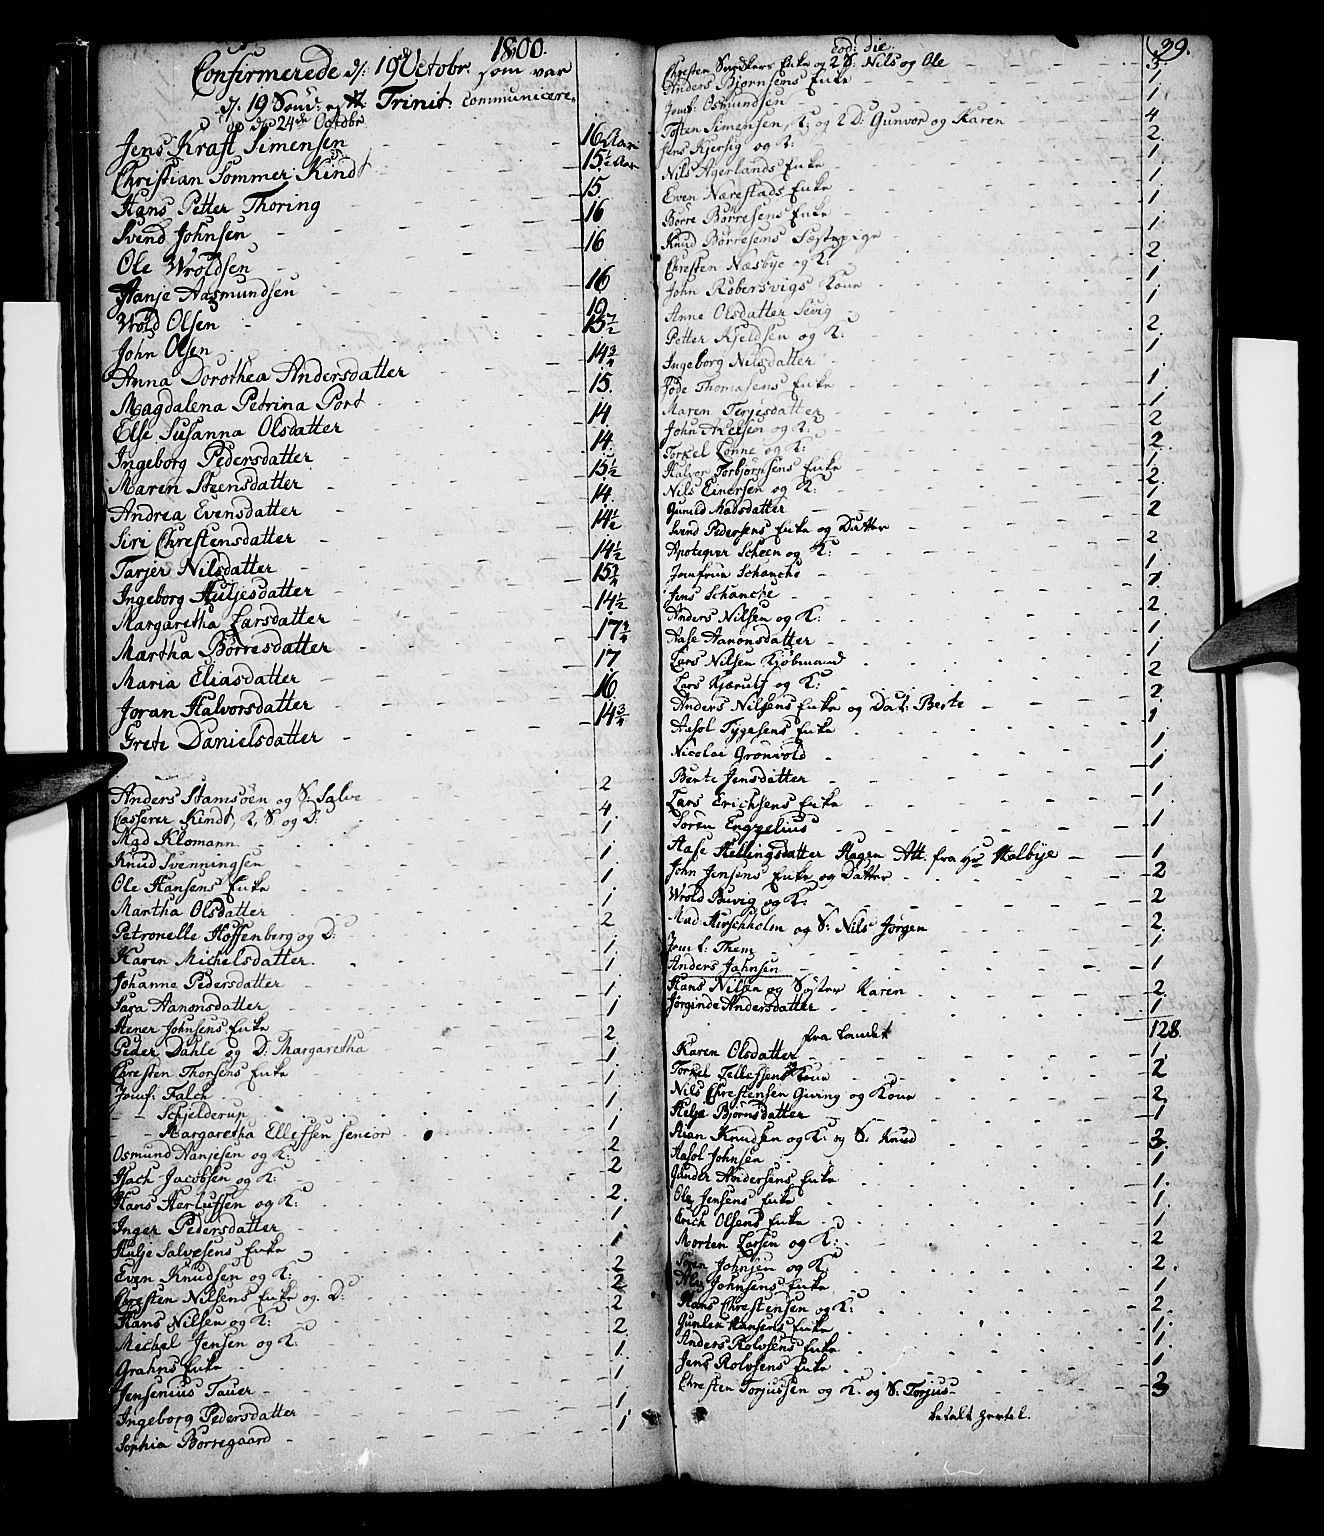 1800.
Confirmerede d: 19 Octobr. som var
d. 19 Sønd: Trinit: communicere
d. 24de Octobr.
Jens Kraft Simensen - 16 Aar
Christian Sommer Kindt 15½ Aar
Hans Petter Thoring - 15
Svend Johnsen - 16
Ole Wroldsen - 16
Hanje Aasmundsen - 16
Wrold Olsen - 19
John Olsen - 15½
Anna Dorothea Andersdatter - 14¾
Magdalena Petrina Port - 15.
Else Susanna Olsdatter - 14
Ingeborg Pedersdatter - 14.
Maren Steensdatter - 15½
Andrea Evensdatter - 14.
Siri Chrestensdatter - 14½
Tarjer Nilsdatter - 14½
Ingeborg Huljesdatter - 15¾
Margaretha Larsdatter - 14½
Martha Børresdatter - 17¾
Maria Eliasdatter - 17
Joran Halvorsdatter - 16
Grete Danielsdatter - 14¾
Anders Stamsöen og S: Salve - 2
Casserer Kindt, K, S: og D: - 4
Mad Klomann - 1
Knud Svenningsen - 1
Ole Hansens Enke - 1
Martha Olsdatter - 1
Petronelle Hoffenberg og D: - 2
Karen Michelsdatter - 1
Johanne Pedersdatter - 1
Sara Aanonsdatter - 1
Hener Johnsens Enke - 1
Peder Dahle og D: Margaretha - 2
Chresten Thorsens Enke - 1
Jomf: Falch - 1
- Schjelderup - 1
- Margaretha Ellefsen senior - 1
Osmund Nanjesen og K: - 2
Isach Jacobsen og K: - 2
Hans Herlufsen og K: - 2.
Inger Pedersdatter - 1
Hulje Salvesens Enke - 1
Even Knudsen og K: - 2
Chresten Nilsens Enke og D: - 2
Hans Nilsen og K: - 2
Michel Jensen og K: - 2
Grahns Enke - 1
Jensenius Tauer - 1
Ingeborg Pedersdatter - 1
Sophia Borregaard - 1
39.
eod: die.
Chresten Snedkers Enke og 2 S: Nils og Ole - 3.
Anders Bjørnsens Enke - 1
Jomf: Osmundsen - 1
Tosten Simensen, K: og 2 D: Gunvor og Karen - 4
Jens Kjersig og K: - 2.
Nils Agerlands Enke - 1
Even Nærestads Enke - 1
Børre Børresens Enke - 1
Knud Børresens Fæstepige - 1
Chresten Næsbye og K: - 2.
John Robersvigs Kone - 1
Anne Olsdatter Sevig - 1
Petter Kjeldsen og K: - 2.
Ingeborg Nilsdatter - 1
Jode Thomasens Enke - 1
Maren Terjesdatter - 1
John Axelsen og K: - 2
Torkel Lonne og K: - 2.
Halvor Torbjørnsens Enke - 1
Nils Einersen og K: - 2.
Gunild Madsdatter - 1
Svend Pedersens Enke og Datter - 2
Apoteqver Scheen og K: - 2
Jomfrue Schanche - 1
Jens Schanche - 1
Anders Nilsen og K: - 2.
Aase Aanonsdatter - 1
Lars Nilsen Kjøbmand - 1
Lars Kjærulf og K: - 2
Anders Nilsens Enke og Dat: Berte - 2
Aasol Tygesens Enke - 1
Nicolai Grønvold - 1
Berte Jensdatter - 1
Lars Erichsens Enke - 1
Søren Engzelius - 1
Aase Hellingsdatter Hagen Att. fra Hr Holbye - 1
John Jensens Enke og Datter - 2
Wrold Buvig og K: - 2
Mad Hirschholm og S: Nils Jørgen - 2
Jomf: Them - 1
Anders Jahnsen - 1
Hans Nilsen og Søster Karen - 2.
Jørginde Andersdatter - 1
128.
fra Landet
Karen Olsdatter - 1.
Torkel Tellefsens Kone - 2
Nils Chrestensen Guring og Kone - 2
Hulje Bjørnsdatter - 1
Stian Knudsen og K: og S: Knud - 3.
Aasol Johnsen - 1
Gunder Andersens Enke - 1
Ole Jensens Enke - 1
Erich Olsens Enke - 1
Morten Larsen og K: - 2
Søren Johnsen og K: - 2.
Johnsens Enke - 1
Hans Chrestensen og K: - 2.
Gunler Hansens Enke - 1.
Anders Rolvsens Enke - 1
Jens Rolvsens Enke - 1
Chresten Torjussen og K: og S: Torjus - 3
betalt